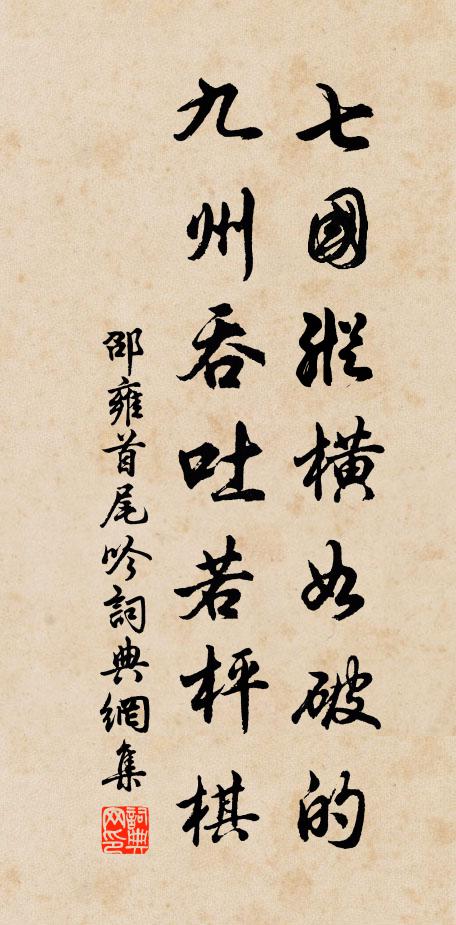 七國縱橫如破的
九州吞吐若枰棋
邵雍首尾吟詞典網集
詞典網印